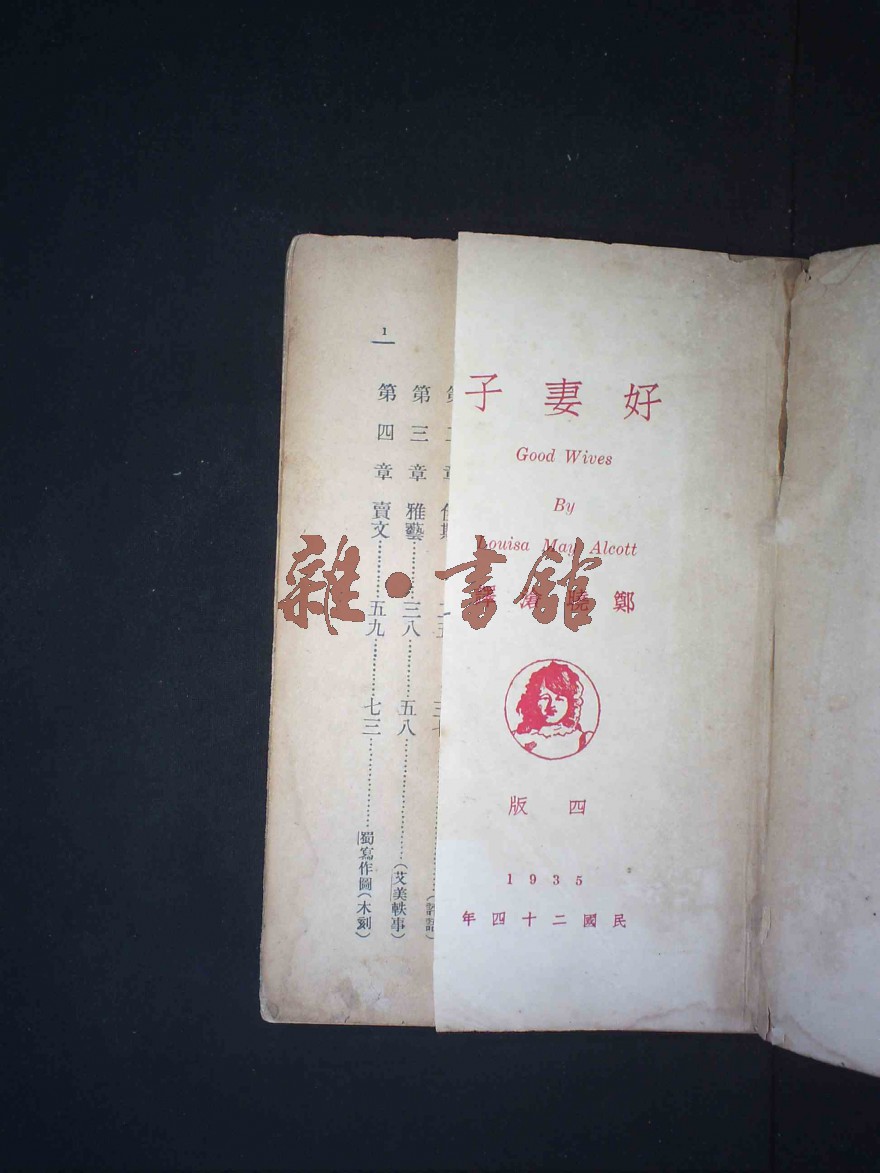 好妻子
Good Wives
By
Louisa May Alcott
鄭曉滄譯
四版
1935
民國二十四年
第三章 雅藝……三八……五八……(艾美軼事)
第四章 賣文……五九……七三……蜀寫作圖(木刻)
1
雜·書館